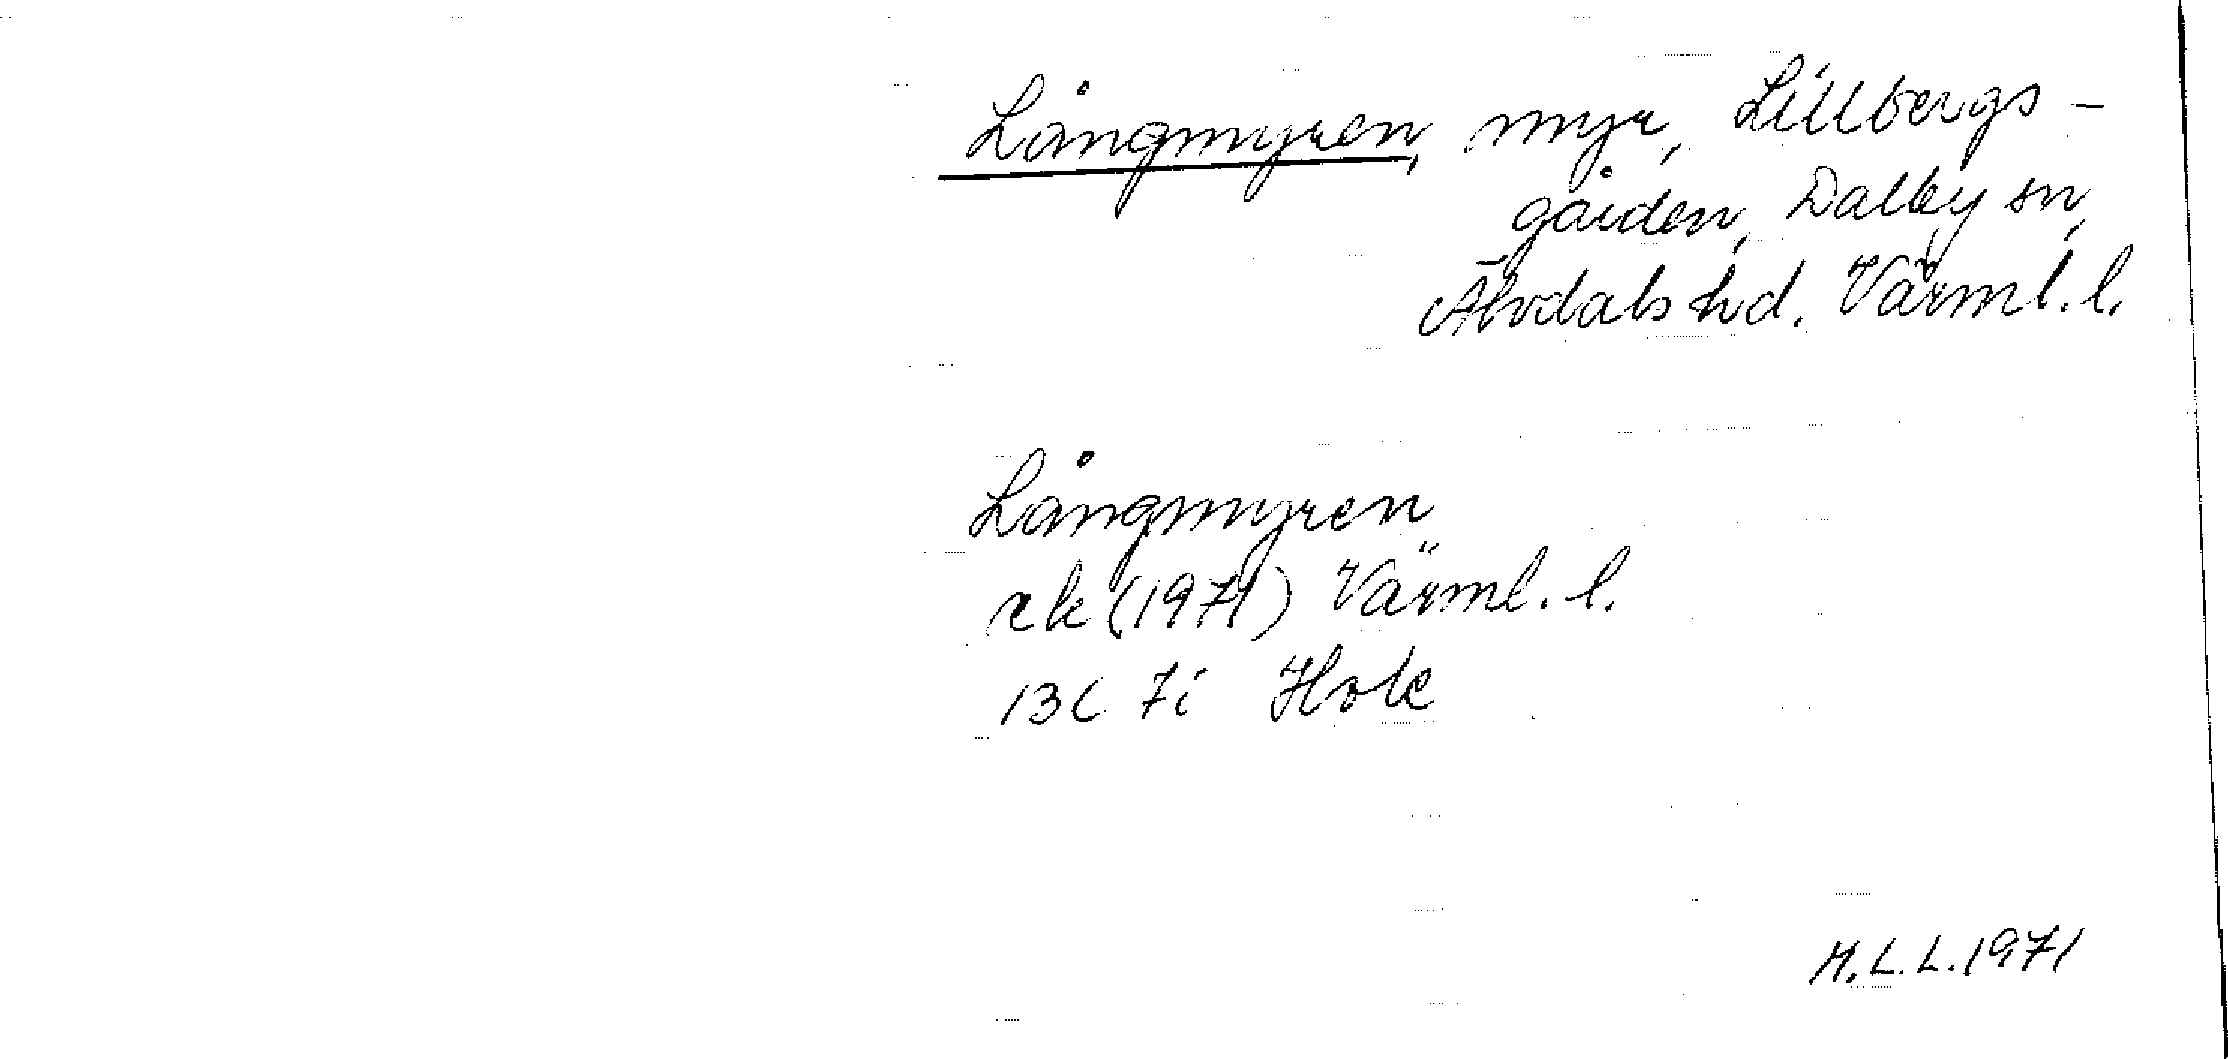 Långmyren, myr, Lillbergs-
gården, Dalby sn,
Älvdals hd. Värml. l.
Långmyren
rk (1971) Värml. l.
13C 7i Hole
M.L.L. 1971